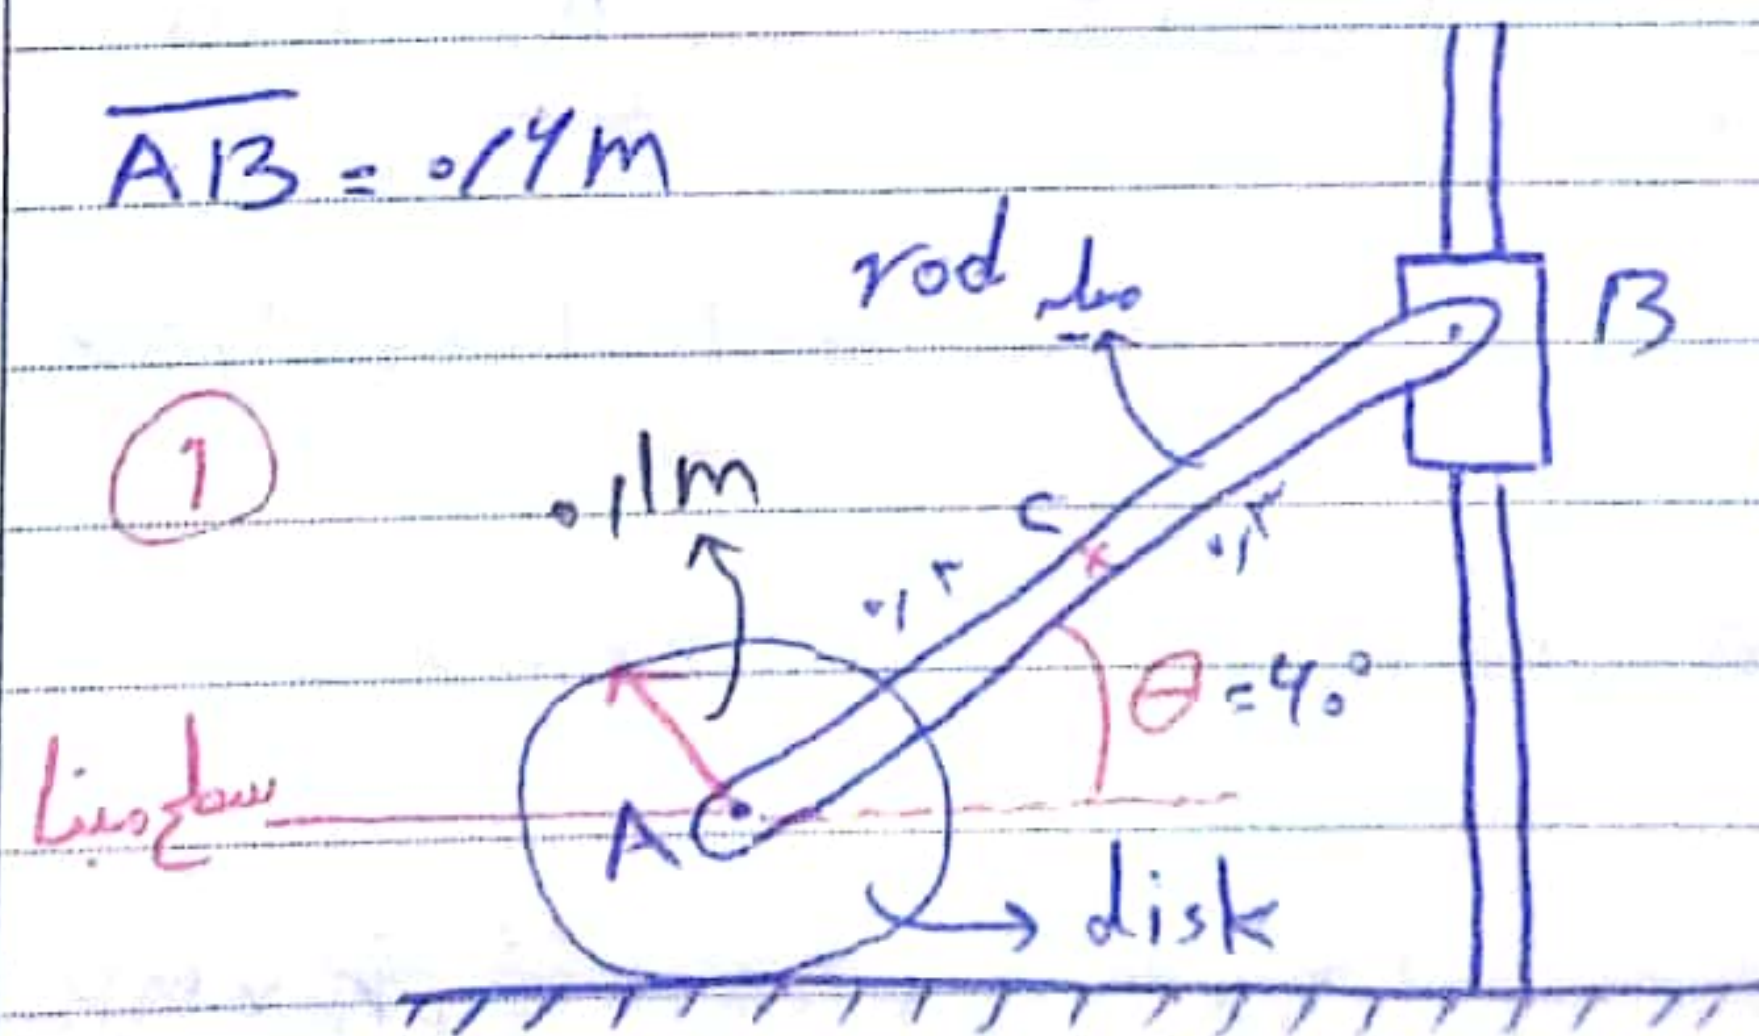 AB = ۰/۶ m
rod میله
B
1
۰,۱ m
C
۰,۳
۰,۳
θ = ۶۰°
سطح مبنا
A
disk